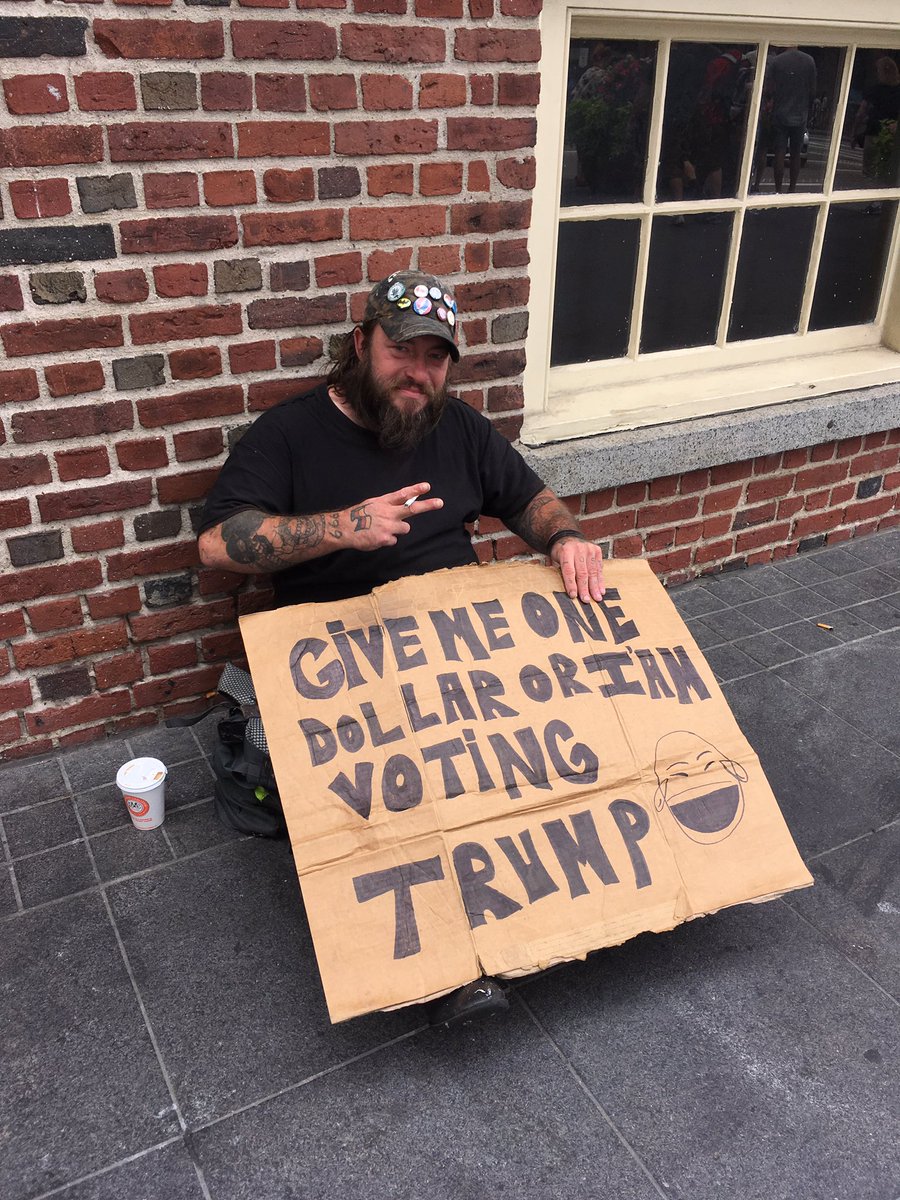 GIVE ME ONE
DOLLAR OR I'AM
VOTING
TRUMP